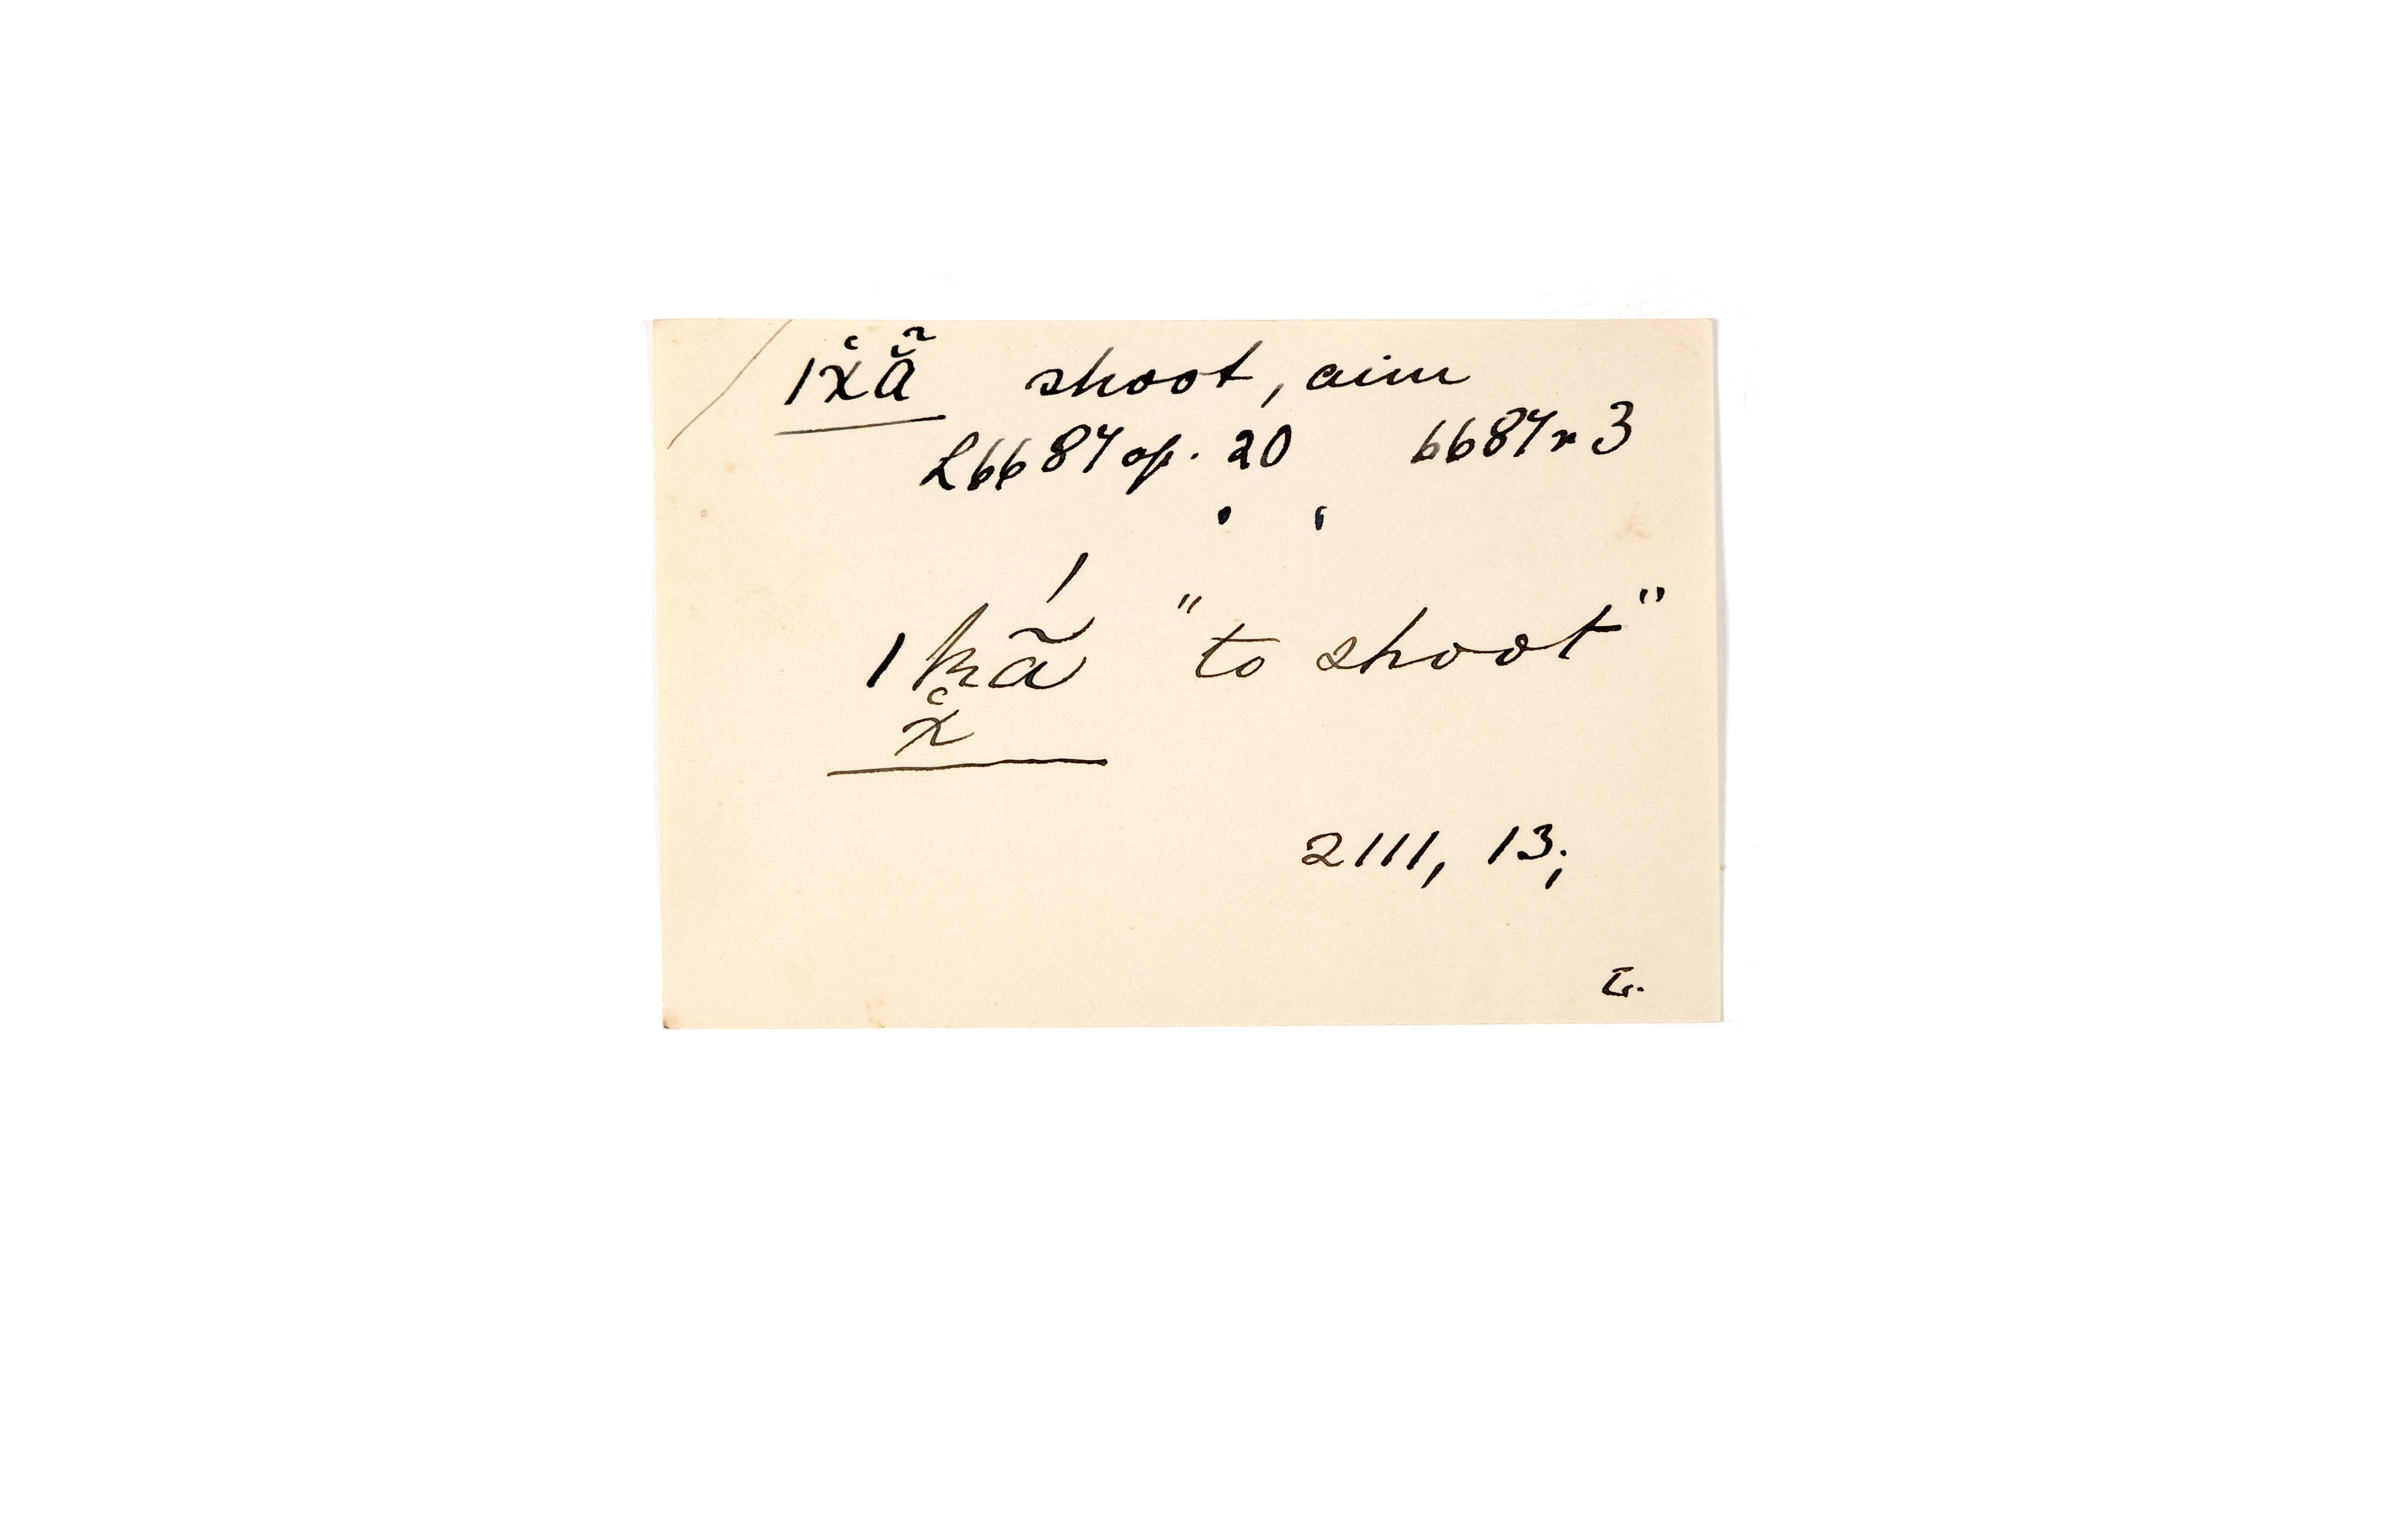 ǀẋ̔ã̆ shoot, aim
L6687 op. 20 6687 r 3
ǀkã́ "to shoot"
ẋ̔
2111, 13;